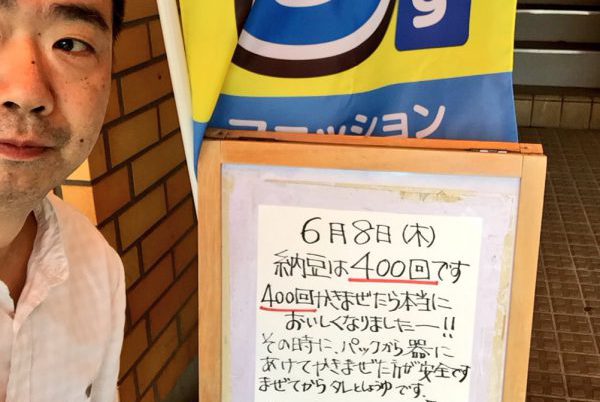 g
フニッション
6月8日(木)
納豆は400回です
400回かきまぜたら本当に
おいしくなりましたー!!
その時に、パックから器に
あけてかきまぜた方が安全です
まぜてから タレとしょうゆです。